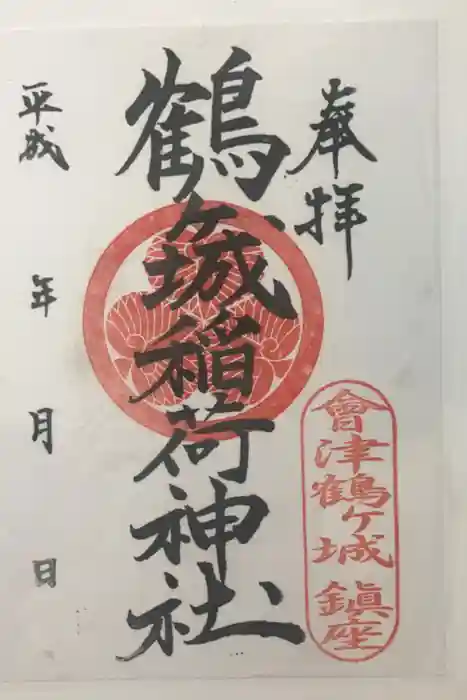 奉拝
會津鶴ヶ城 鎮座
鶴ヶ城稲荷神社
平成 年 月 日